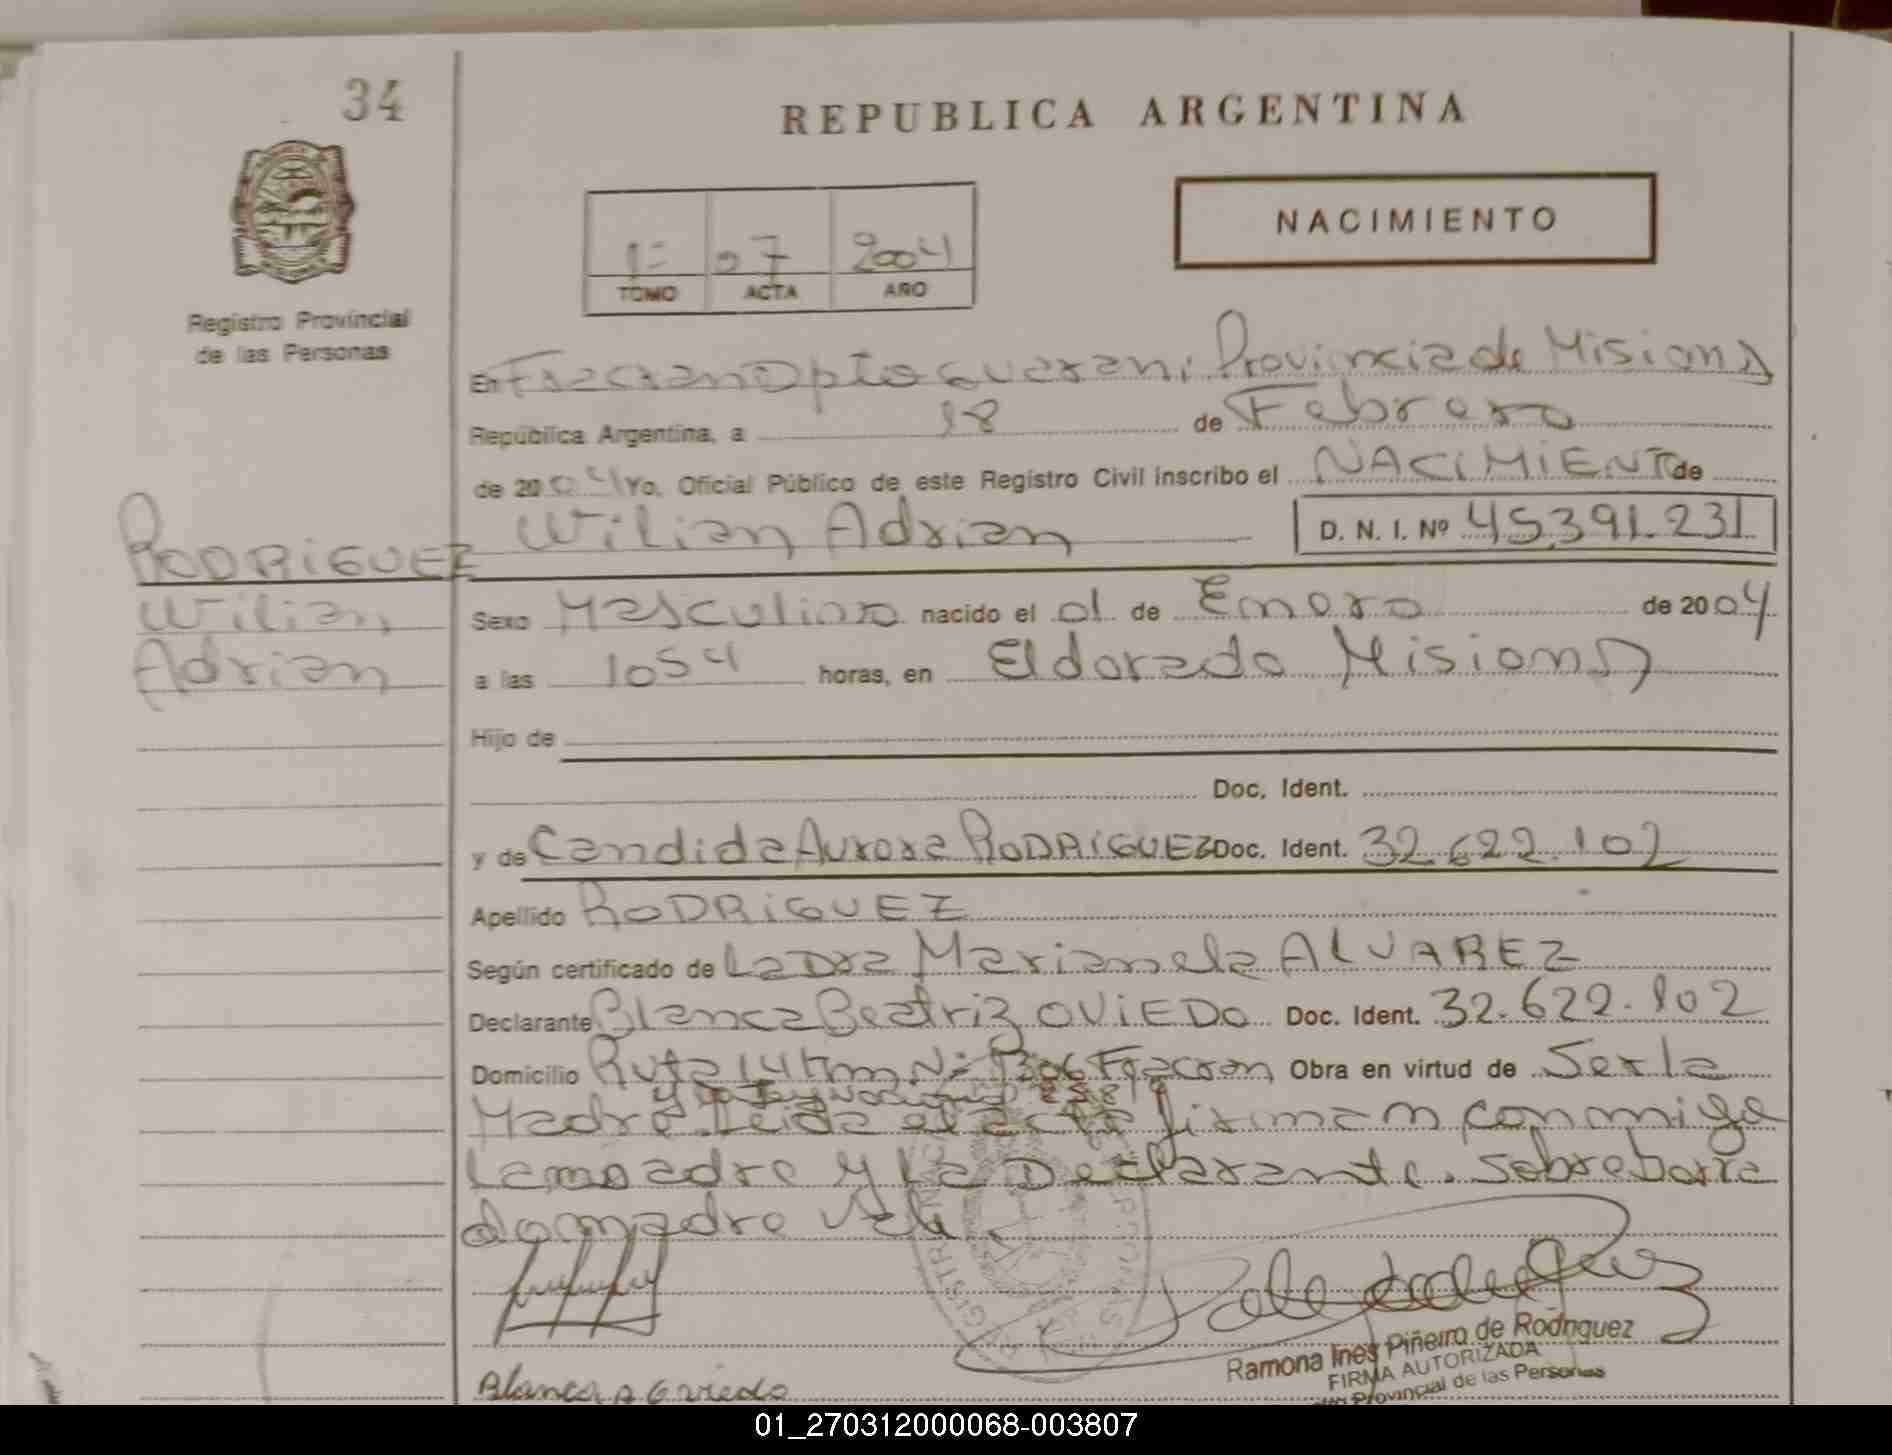 34
REPUBLICA ARGENTINA
NACIMIENTO
1= 07 2004
TOMO ACTA AÑO
Registro Provincial
de las Personas
En Fracran Dpto Guarani, Provincia de Misiones
República Argentina, a 18 de Febrero
de 2004 Yo, Oficial Público de este Registro Civil inscribo el NACIMIENTO de
Wilian Adrian D. N. I. Nº 45.391.231
RODRIGUEZ
Wilian
Adrian
Sexo Masculino nacido el 01 de Enero de 2004
a las 1054 horas, en Eldorado Misiones
Hijo de
Doc. Ident.
y de Candida Aurora RODRIGUEZ Doc. Ident. 32.622.102
Apellido RODRIGUEZ
Según certificado de La Dra Marianela ALVAREZ
Declarante Blanca Beatriz OVIEDO Doc. Ident. 32.622.102
Domicilio Ruta 14 Km N= Fracran Obra en virtud de Ser la
Madre. Leida el acta firman conmigo
la madre y la Declarante. Sobreborra
do madre Vale.
Blanca B Oviedo
Ramona Ines Piñeiro de Rodriguez
FIRMA AUTORIZADA
Provincial de las Personas
01_270312000068-003807